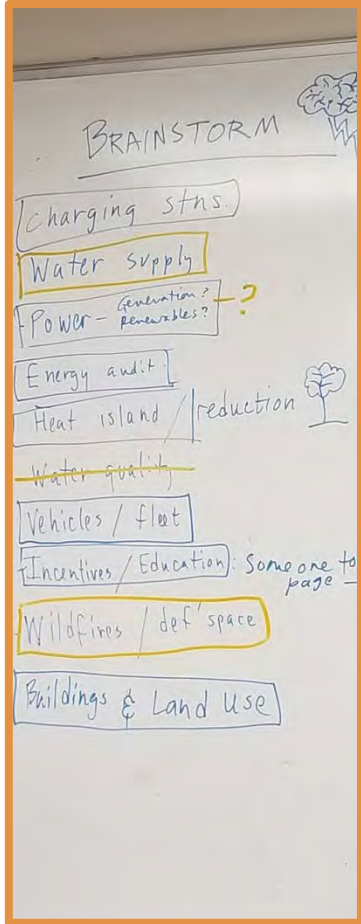 BRAINSTORM
Charging stns.
Water supply
Power – Generation? – ?
Renewables?
Energy audit
Heat island / reduction
Water quality
Vehicles / fleet
Incentives / Education: Someone to
page –
Wildfires / def' space
Buildings & Land Use